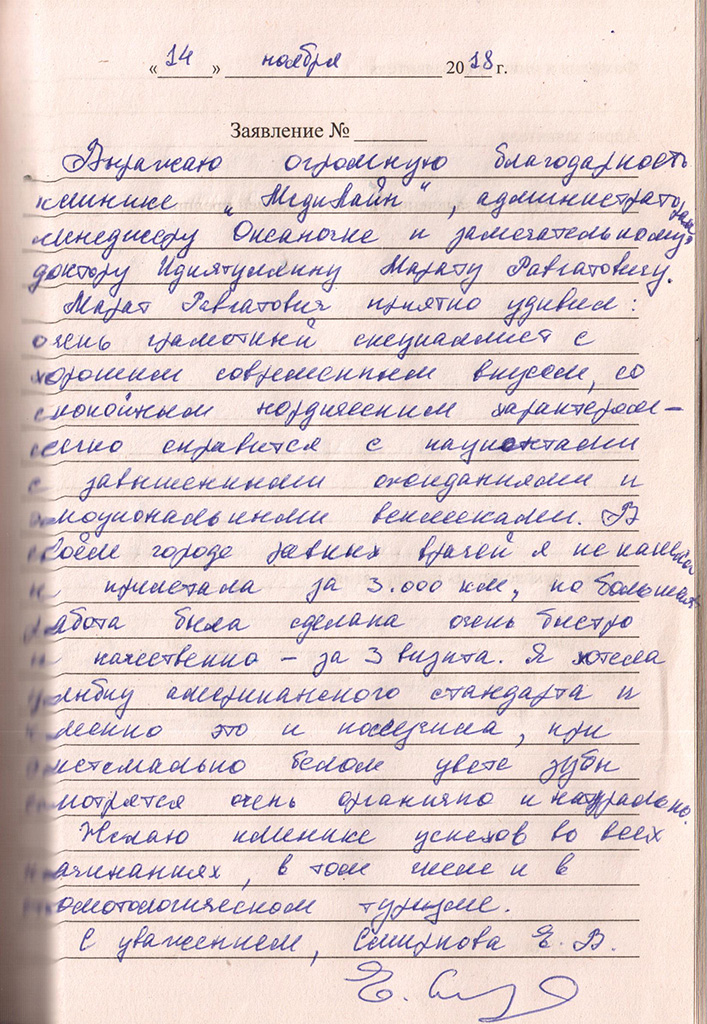 «14» ноября 2018 г.
Заявление №
Выражаю огромную благодарность
клинике „МедиЛайн“, администратору
менеджеру Оксаночке и замечательному
доктору Идиятуллину Марату Равгатовичу.
Марат Равгатович приятно удивил:
очень грамотный специалист с
хорошим современным вкусом, со
спокойным нордическим характером –
легко справится с пациентами
с завышенными ожиданиями и
эмоциональными всплесками. В
своём городе равных врачей я не нашла
и прилетала за 3.000 км, но большая
работа была сделана очень быстро
и качественно – за 3 визита. Я хотела
улыбку американского стандарта и
именно это и получила, при
экстемально белом цвете зубы
смотрятся очень органично и натурально.
Желаю клинике успехов во всех
начинаниях, в том числе и в
стоматологическом туризме.
С уважением, Смирнова Е. В.